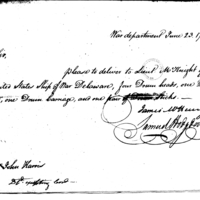 War department June 23. 1
Please to deliver to Lieut McKnight
United States Ship of War Delaware, four Drum heads, one
one Drum Carriage, and one pair of Sticks—
James McHen
Samuel Hodgdon
John Harris